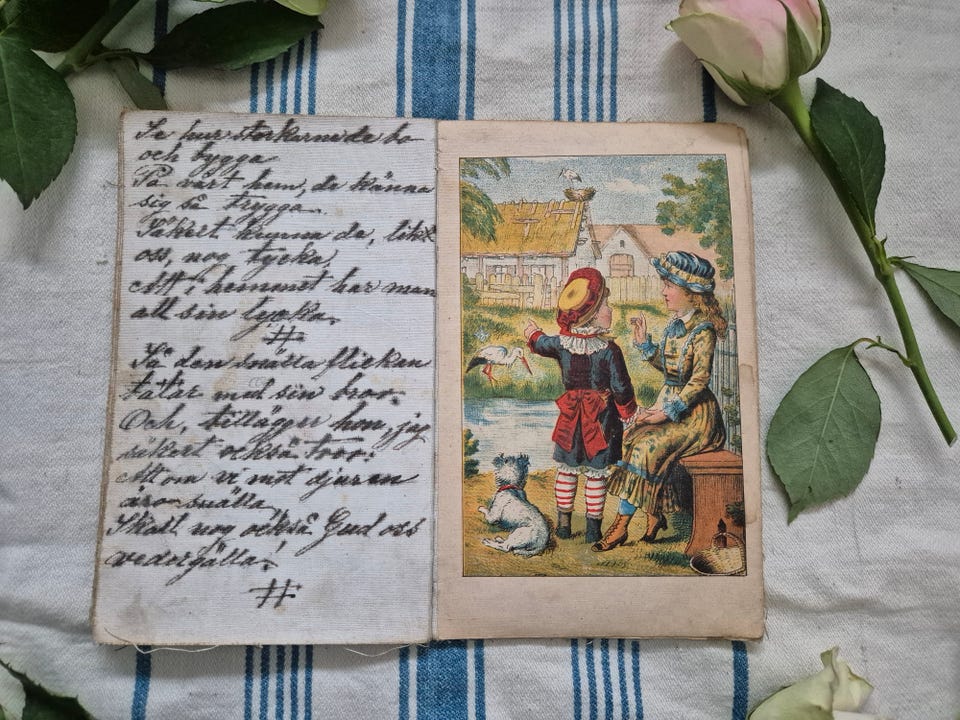 Se hur storkarne de bo
och bygga
På vårt hem, de känna
sig så trygga.
Säkert kunna de, likt
oss, nog tycka,
Att i hemmet har man
all sin lycka.
#
Så den snälla flickan
talar med sin bror.
Och, tillägger hon, jag
säkert också tror:
Att om vi mot djuren
äro snälla,
Skall nog också Gud oss
vedergälla!
#